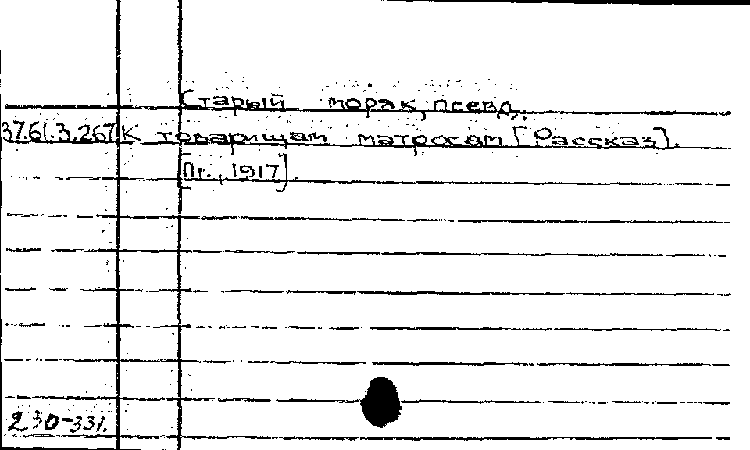 Старый моряк, псевд.
37.61.3.267 К товарищам матросам [Рассказ].
[Пг., 1917].
230-331.